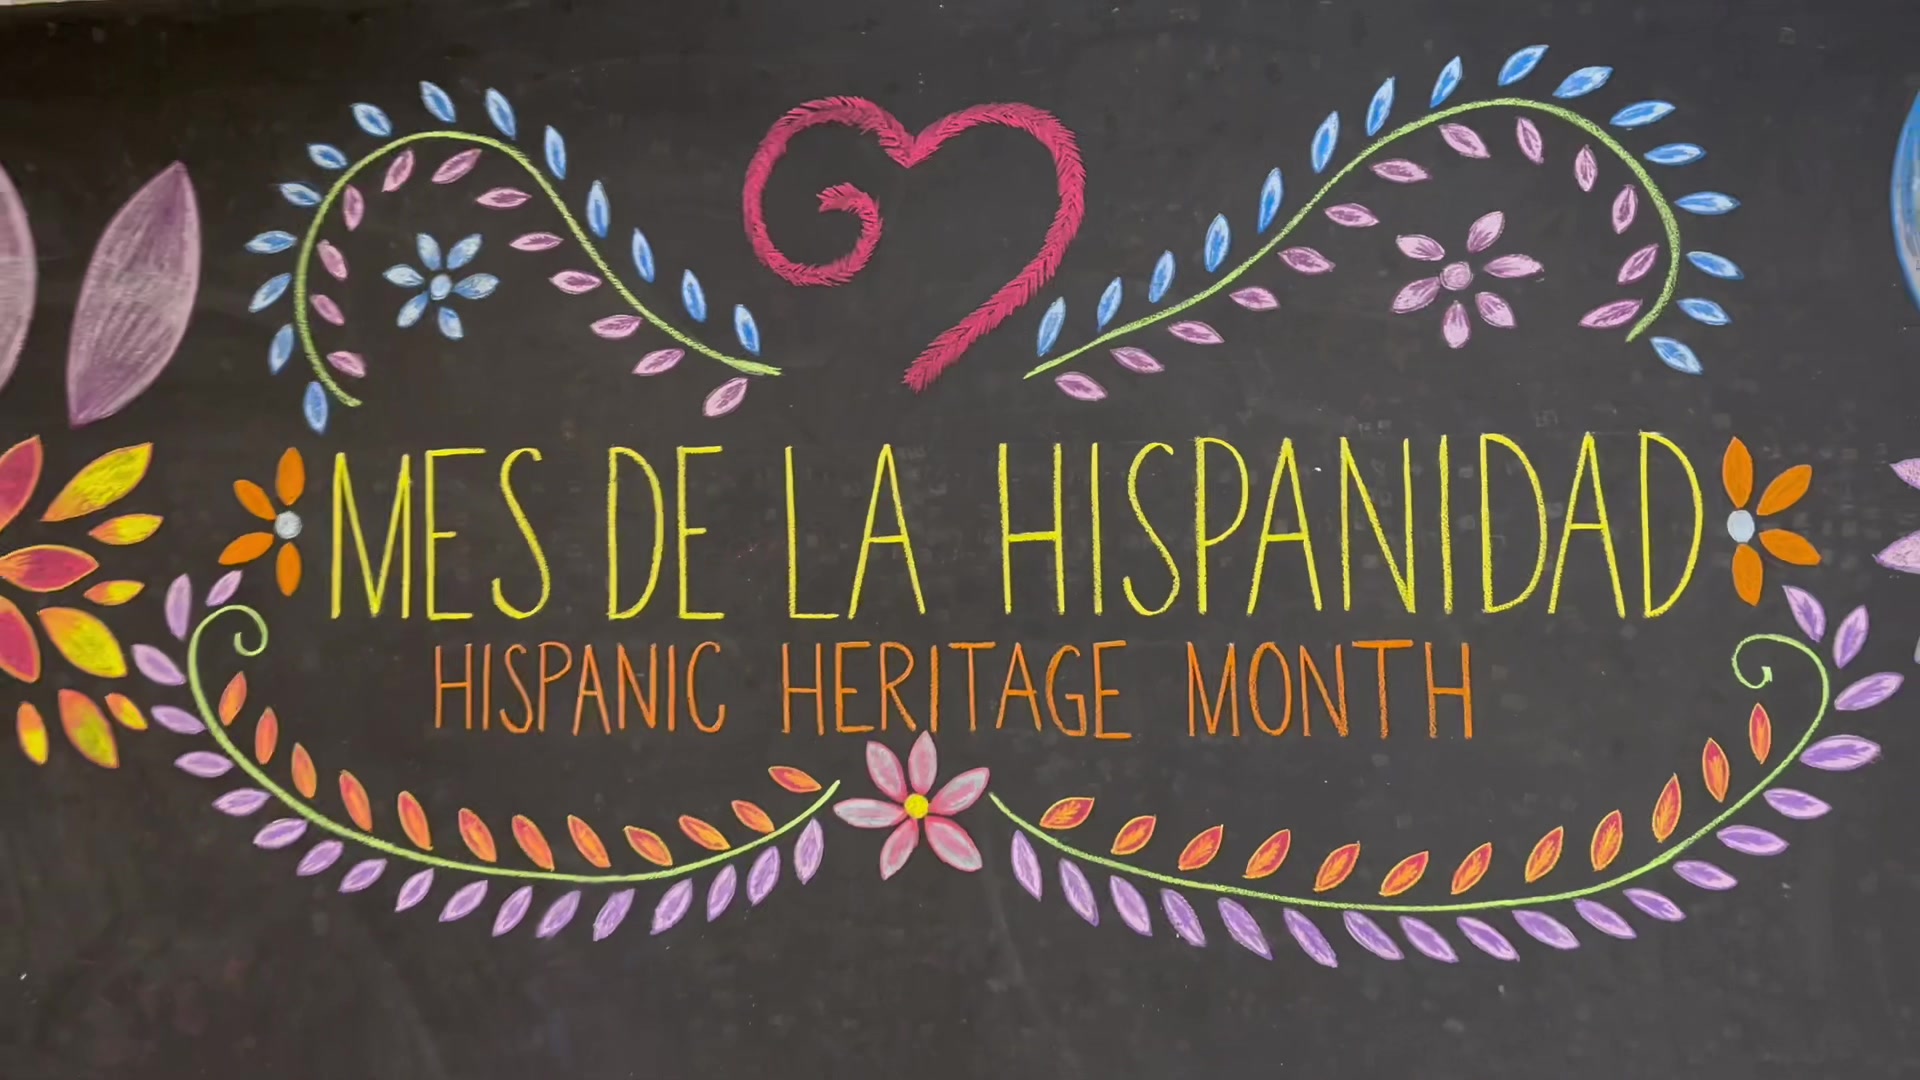 MES DE LA HISPANIDAD
HISPANIC HERITAGE MONTH